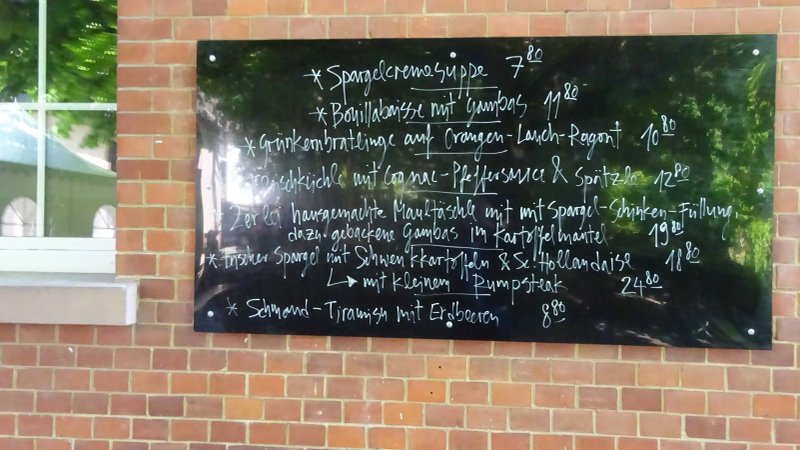 * Spargelcremesuppe 7 80
* Bouillabaisse mit Gambas 11 80
* Grünkernbratlinge auf Orangen-Lauch-Ragout 10 80
Fleischküchle mit Cognac-Pfeffersauce & Spätzle 12 80
2erlei hausgemachte Maultäschle mit mit Spargel-Schinken-Füllung,
dazu gebackene Gambas im Kartoffelmantel 19 80
* frischer Spargel mit Schwenkkartoffeln & Sc. Hollandaise 18 80
↳ mit kleinem Rumpsteak 24 80
* Schmand-Tiramisu mit Erdbeeren 8 80